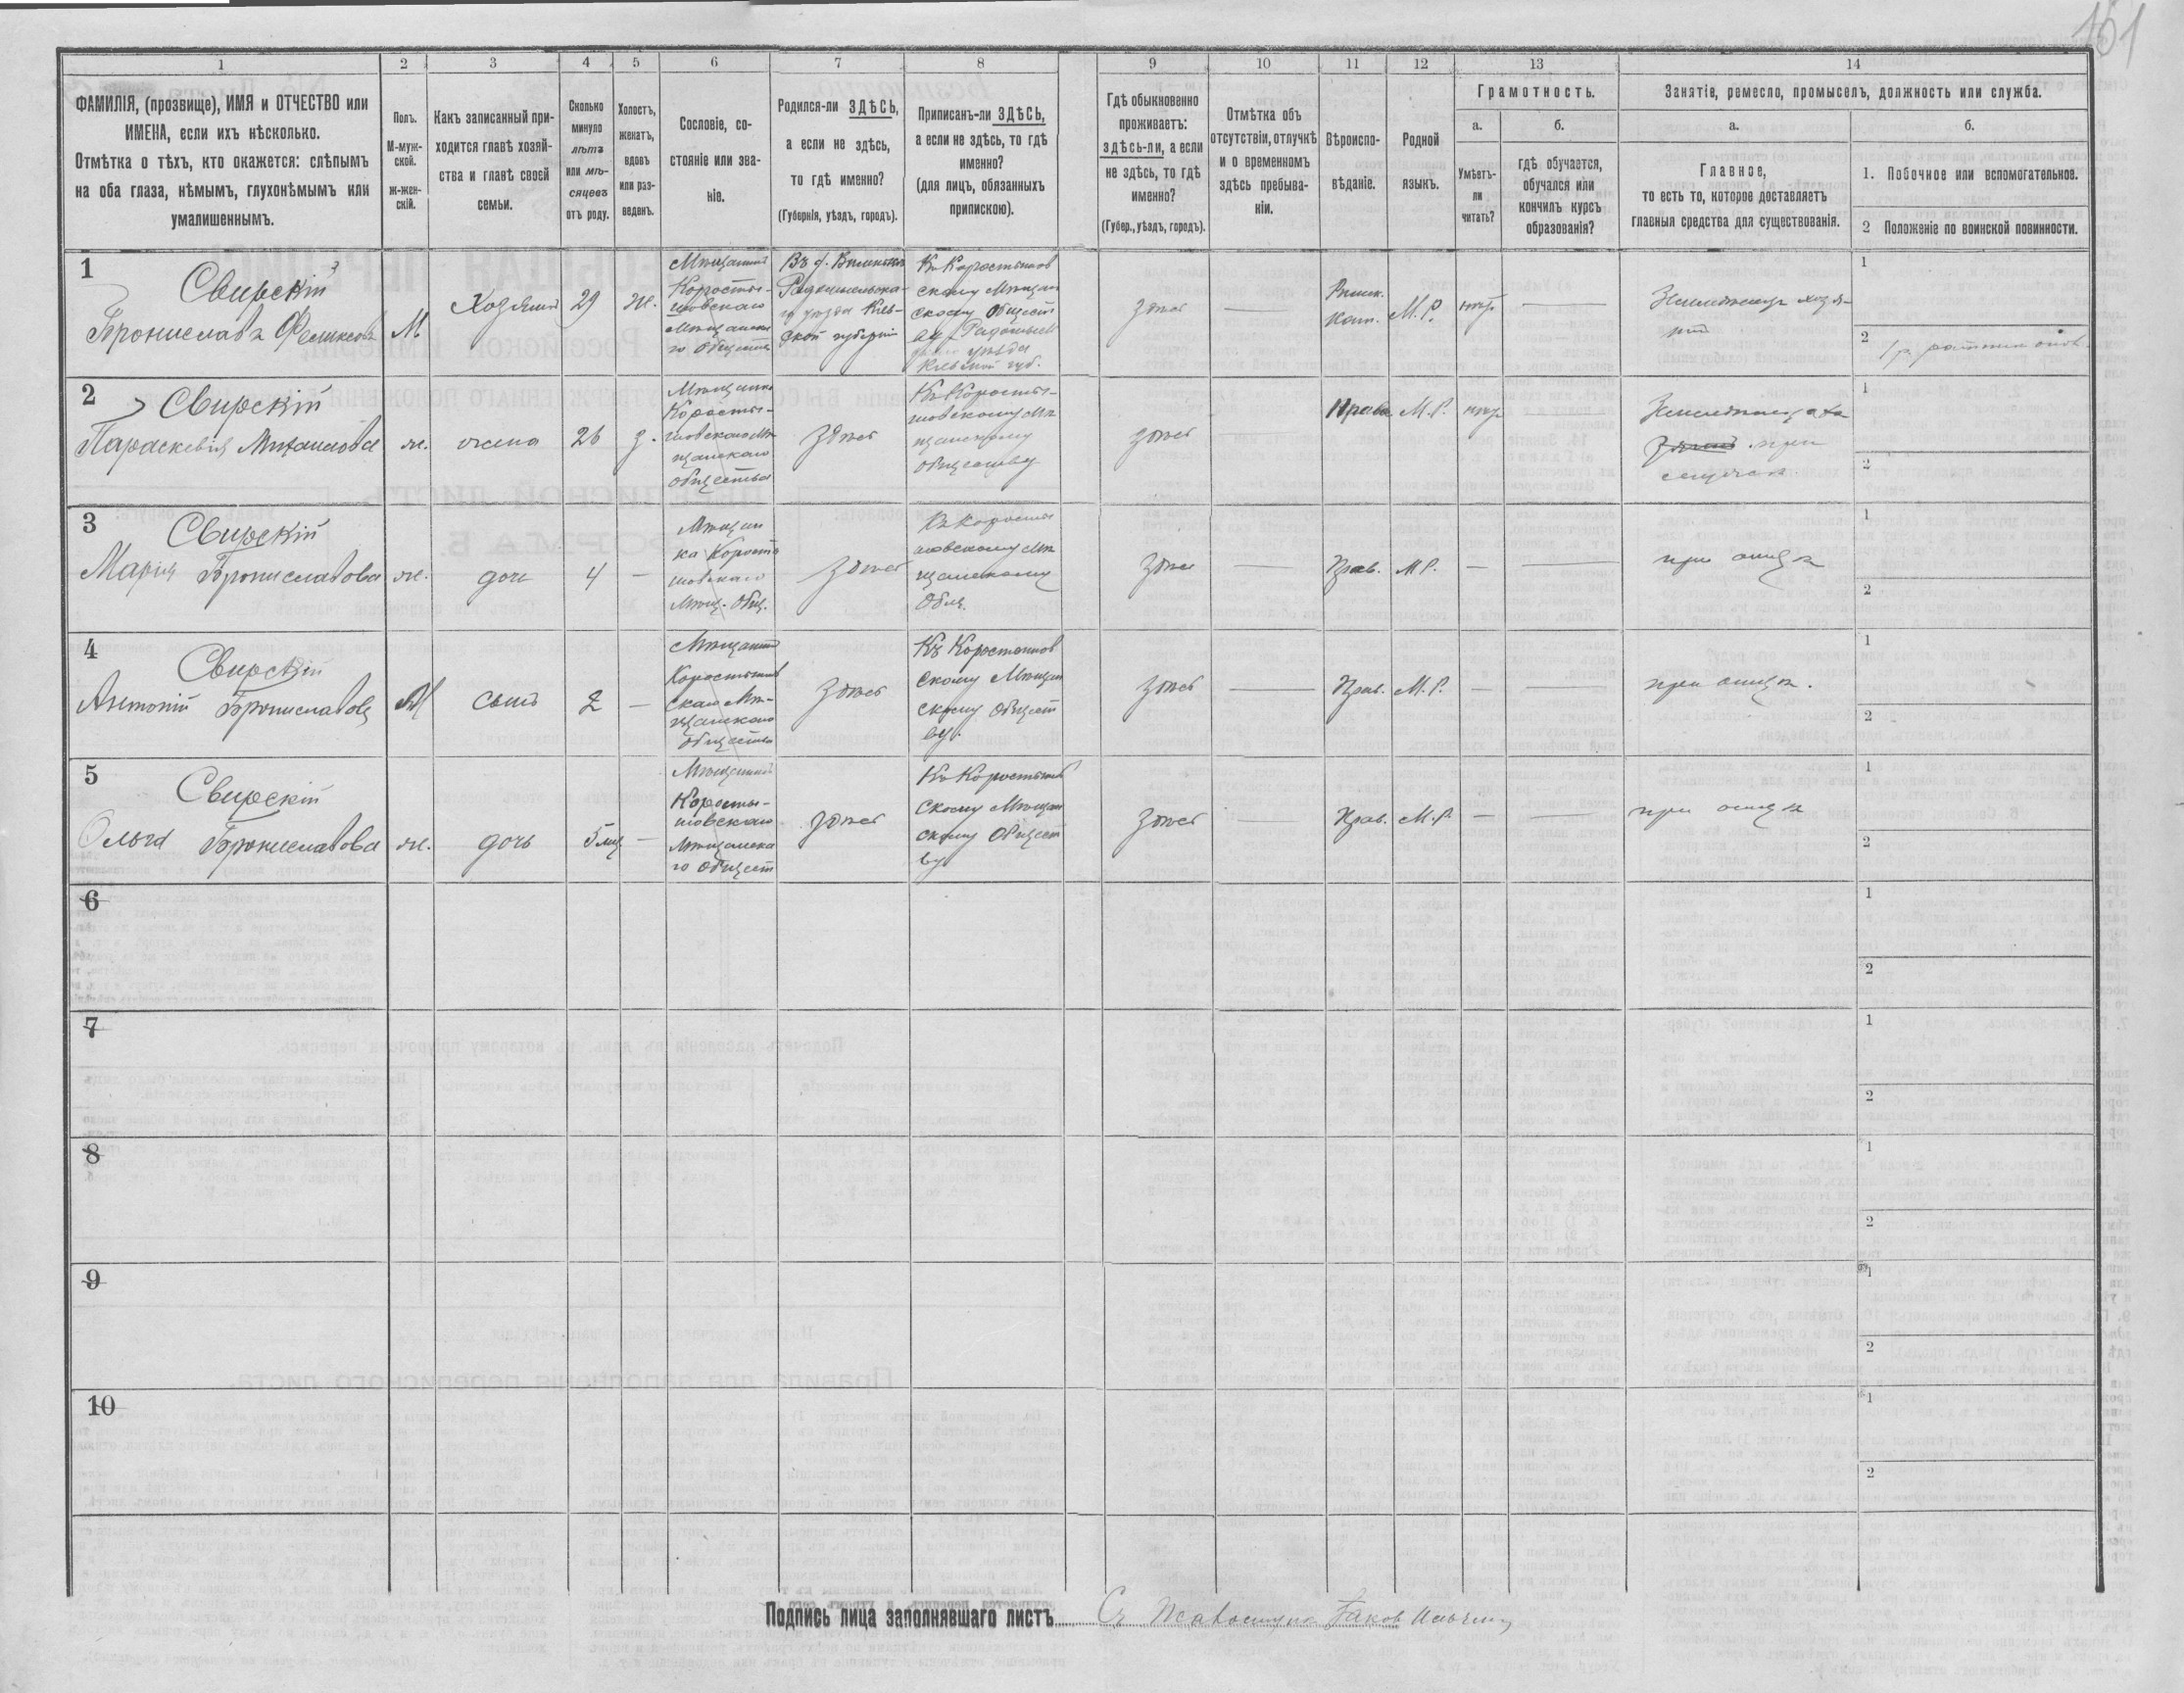 161
1
2
3
4
5
6
7
8
9
10
11
12
13
14
ФАМИЛІЯ, (прозвище), ИМЯ и ОТЧЕСТВО или
ИМЕНА, если ихъ нѣсколько.
Отмѣтка о тѣхъ, кто окажется: слѣпымъ
на оба глаза, нѣмымъ, глухонѣмымъ или
умалишеннымъ.
Полъ.
М-муж-
ской.
ж-жен-
скій.
Какъ записанный при-
ходится главѣ хозяй-
ства и главѣ своей
семьи.
Сколько
минуло
лѣтъ
или мѣ-
сяцевъ
отъ роду.
Холостъ,
женатъ,
вдовъ
или раз-
веденъ.
Сословіе, со-
стояніе или зва-
ніе.
Родился-ли ЗДѢСЬ,
а если не здѣсь,
то гдѣ именно?
(Губернія, уѣздъ, городъ).
Приписанъ-ли ЗДѢСЬ,
а если не здѣсь, то гдѣ
именно?
(для лицъ, обязанныхъ
припискою).
Гдѣ обыкновенно
проживаетъ:
здѣсь-ли, а если
не здѣсь, то гдѣ
именно?
(Губер., уѣздъ, городъ).
Отмѣтка объ
отсутствіи, отлучкѣ
и о временномъ
здѣсь пребыва-
ніи.
Вѣроиспо-
вѣданіе.
Родной
языкъ.
Грамотность.
а.
Умѣетъ-
ли
читать?
б.
гдѣ обучается,
обучался или
кончилъ курсъ
образованія?
Занятіе, ремесло, промыселъ, должность или служба.
а.
Главное,
то есть то, которое доставляетъ
главныя средства для существованія.
б.
1. Побочное или вспомогательное.
2 Положеніе по воинской повинности.
1
Свирскій
Брониславъ Феликсовъ
М.
Хозяинъ
29
ж.
Мѣщанинъ
Коросты-
шовскаго
Мѣщанска
го общества
Радомысльска-
го уѣзда Кіев-
ской губерніи
Къ Коростышов
скому Мѣщан
скому Общест
ву Радомысл
уѣзда
Кіевской губ.
здѣсь
Римск.
Кат.
М.Р.
нѣтъ
1
2
2
Свирскій
Параскевія Михайлова
ж.
жена
26
з.
Мѣщанка
Коросты-
шовскаго Мѣ
щанскаго
общества
здѣсь
Къ Коросты-
шовскому Мѣ
щанскому
обществу
здѣсь
Прав.
М.Р.
нѣтъ
при
1
2
3
Свирскій
Марія Брониславова
ж.
дочь
4
—
Мѣщан
ка Корост
шовскаго
Мѣщ. Общ.
здѣсь
Къ Коросты
шовскому Мѣ
щанскому
Общ.
здѣсь
Прав.
М.Р.
—
при отцѣ
1
2
4
Свирскій
Антоній Брониславовъ
М
сынъ
2
—
Мѣщанинъ
Коростышов
скаго Мѣ-
щанскаго
общества
здѣсь
Къ Коростышов
скому Мѣщан
скому Общест
ву.
здѣсь
Прав.
М.Р.
—
при отцѣ.
1
2
5
Свирскій
Ольга Брониславова
ж.
дочь
5 мѣц
—
Коросты-
шовскаго
Мѣщанска
го общест
здѣсь
Къ Коростышов
скому Мѣщан
скому Общест
ву
здѣсь
Прав.
М.Р.
—
при отцѣ
1
2
6
1
2
7
1
2
8
1
2
9
1
2
10
1
2
Подпись лица заполнявшаго листъ